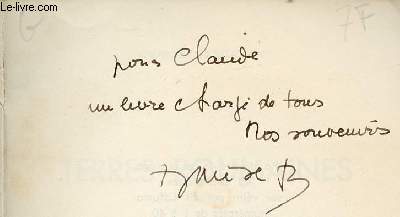 Le-livre.com
G
7F
pour Claude
un livre chargé de tous
Nos souvenirs